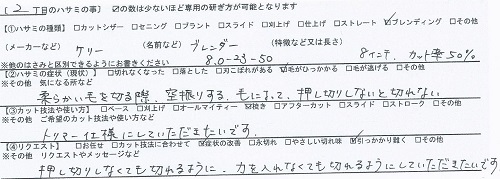 【2丁目のハサミの事】 ☑の数は少ないほど専用の研ぎ方が可能となります
【①ハサミの種類】 □カットシザー □セニング □プラント □スライド □刈上げ □仕上げ □ストレート ☑ブレンディング □その他
(メーカーなど) ケリー (名前など) ブレンダー (特徴など又は長さ)
※他のはさみと区別できるようにお書きください 8.0-23-50 8インチ、カット率50%
【②ハサミの症状（現状）】 □切れなくなった □落とした □刃こぼれがある ☑毛がひっかかる □毛が逃げる □その他
※その他 気になる所など
柔らかい毛を切る際、空振りする。毛によって、押し切りしないと切れない。
【③カット技法や使い方】 □ベース □刈上げ □オールマイティー ☑梳き □アフターカット □スライド □ストローク □その他
※その他 ご希望のカット技法や使い方など
トリマー仕様にしていただきたいです。
【④リクエスト】 □お任せ □カット技法に合わせて ☑症状の改善 □永切れ □やさしい切れ味 ☑引っかかり難く □その他
※その他 リクエストやメッセージなど
押し切りしなくても切れるように、力を入れなくても切れるようにしていただきたいです